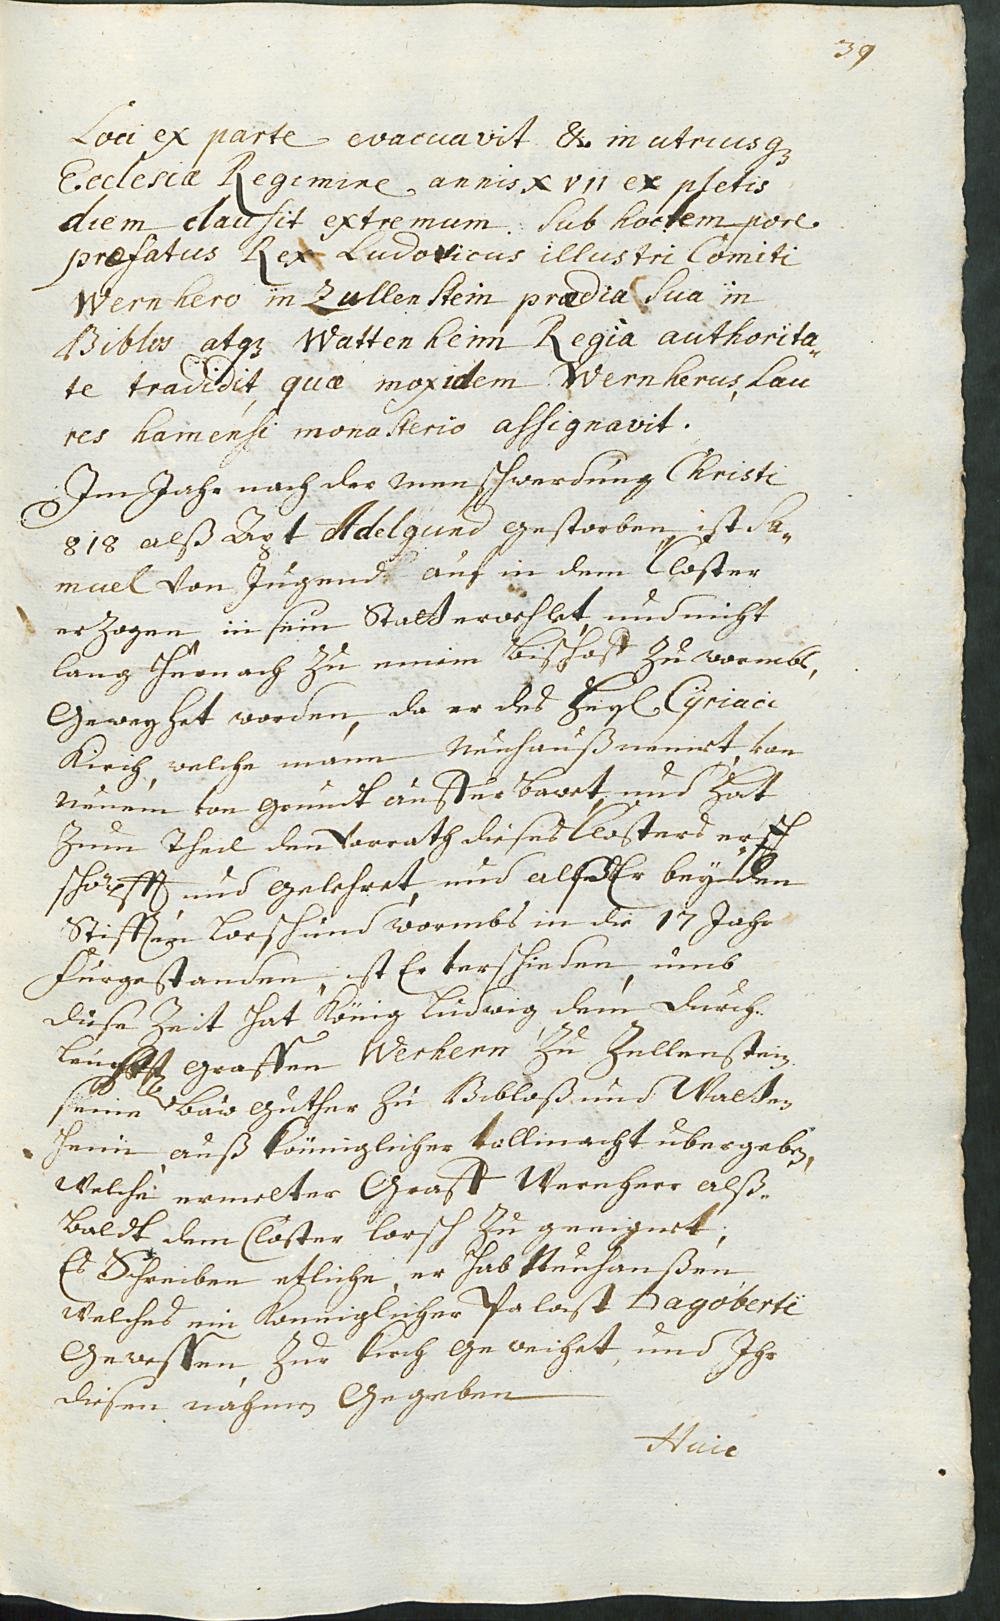 39
Loci ex parte evacuavit & in utriusqz
Ecclesiæ Regimine annis XVII expletis
diem clausit extremum. Sub hoc tempore
præfatus Rex Ludovicus illustri Comiti
Wernhero in Zullenstein prædia sua in
Biblos atqz Wattenheim Regià authorita„
te tradidit, quæ mox idem Wernherus, Lau
reshamensi monasterio assignavit.
Im Jahr nach der menschwerdung Christi
818 alß Apt Adelgund gestorben, ist Sa„
muel von Jugend auf in dem Closter
erzogen, in sein Statt erwehlet, und nicht
lang hernach zu einem Bischoff zu wormbs,
Geweyhet worden, da er des heyl. Cyriaci
Kirch, welche mann Neuhauß nennet, von
neuem von grundt aufferbawet, und hat
zum Theil den Vorrath dieses Closters ersch
schöpfft, und gelehret, und alß Er beyden
Stifften Lorsch und wormbs in die 17 Jahr
fürgestanden, ist Er verschieden, umb
diese Zeit hat König Ludwig dem durch„
leuchtst graffen Werhern zu Zellenstein
seine baw guther zu Bibloß und Watten
heim, auß königlicher vollmacht ubergeben,
Welche ermelter Graff Wernherr alß„
baldt dem Closter Lorsch zu geeignet,
Es Schreiben etliche, er hab Neuhaußen
welches ein königlicher Palast Dagoberti
Gewessen, zur Kirch geweihet, und Ihr
diesen nahmen Gegeben
Huic